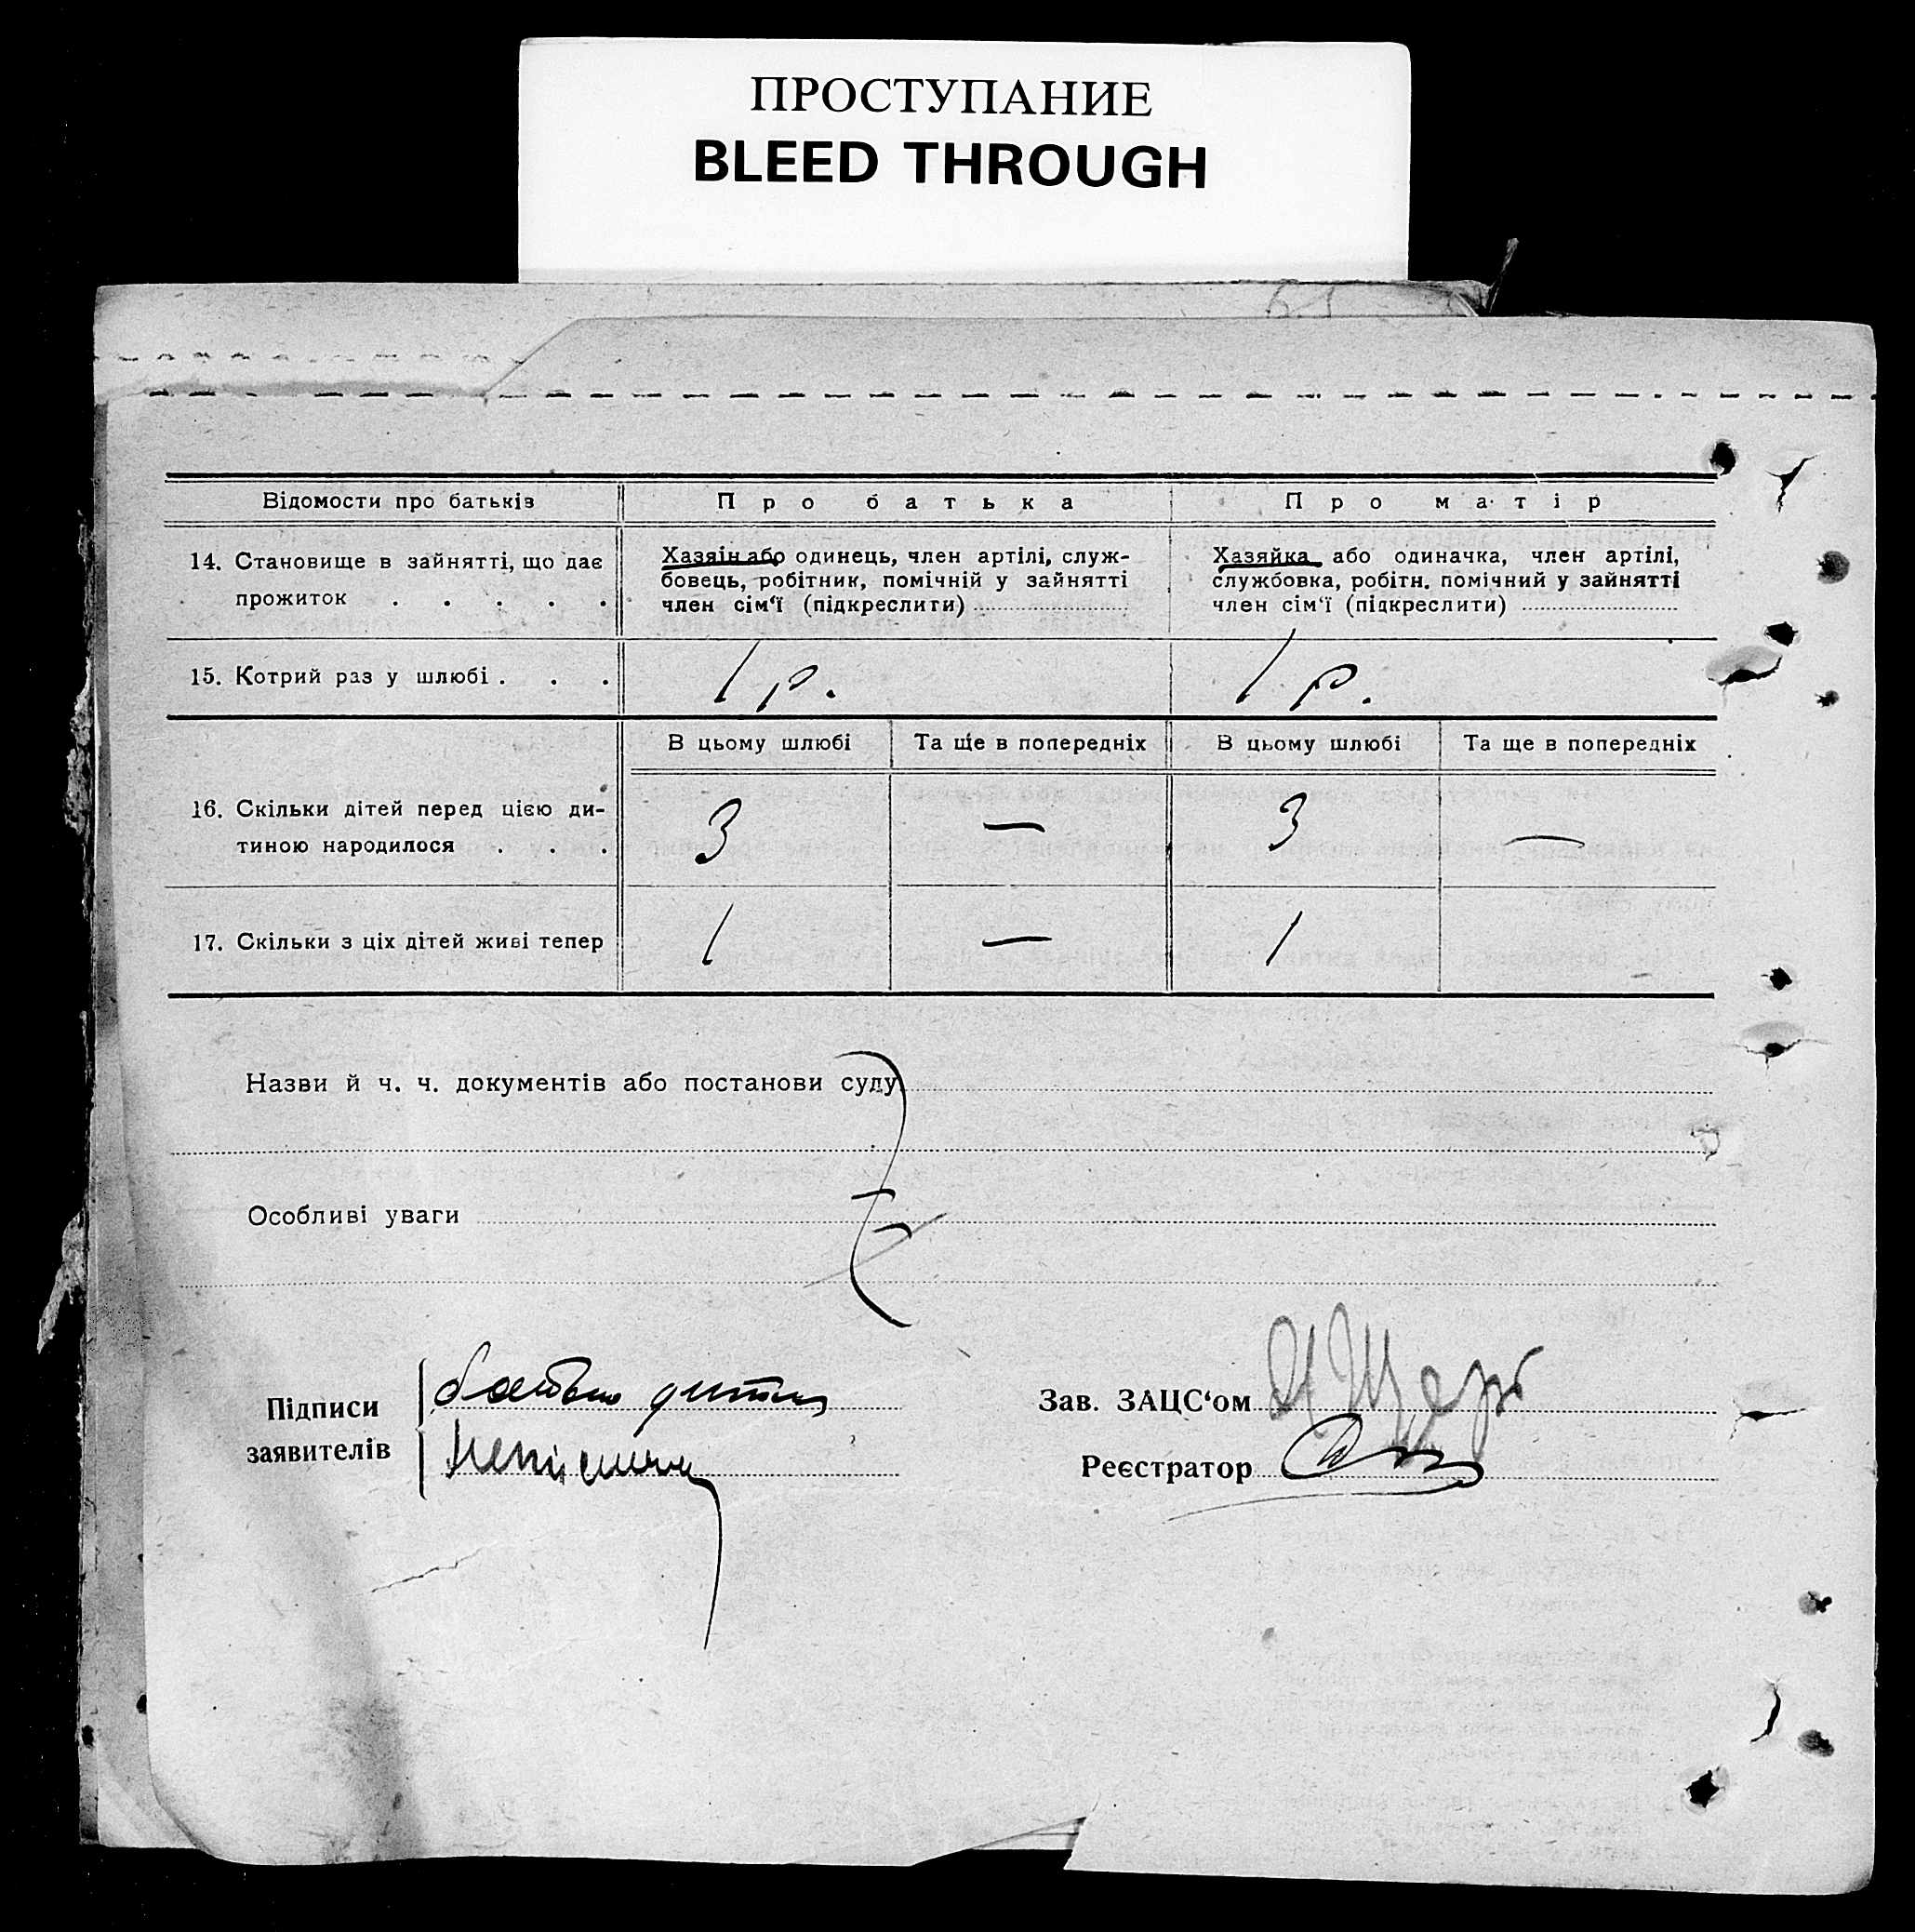 ПРОСТУПАНИЕ
BLEED THROUGH
Відомости про батьків
Про батька
Про матір
14. Становище в зайнятті, що дає
прожиток . . . . .
Хазяін або одинець, член артілі, служ-
бовець, робітник, помічній у зайнятті
член сім‘ї (підкреслити)
Хазяйка або одиначка, член артілі,
службовка, робітн. помічний у зайнятті
член сім‘ї (підкреслити)
15. Котрий раз у шлюбі . . .
1 р.
1 р.
В цьому шлюбі
Та ще в попередніх
В цьому шлюбі
Та ще в попередніх
16. Скільки дітей перед цією ди-
тиною народилося . . .
3
—
3
—
17. Скільки з ціх дітей живі тепер
1
—
1
Назви й ч. ч. документів або постанови суду
Особливі уваги
Підписи
заявителів
батько дитини
Зав. ЗАЦС‘ом
Реєстратор